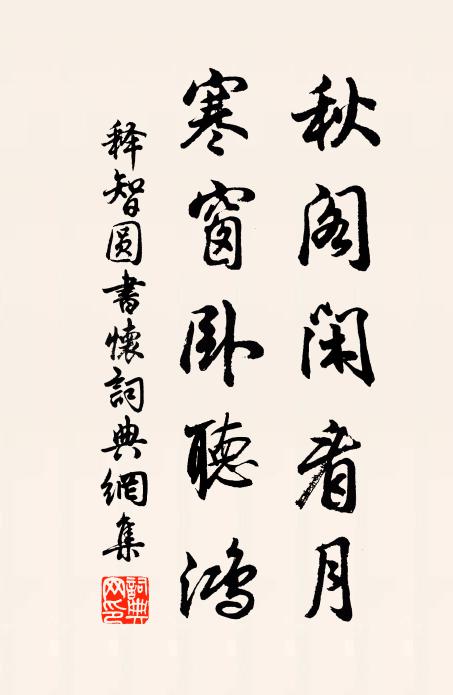 秋阁闲看月
寒窗卧聽鴻
释智圆書懷詞典網集
詞典网印